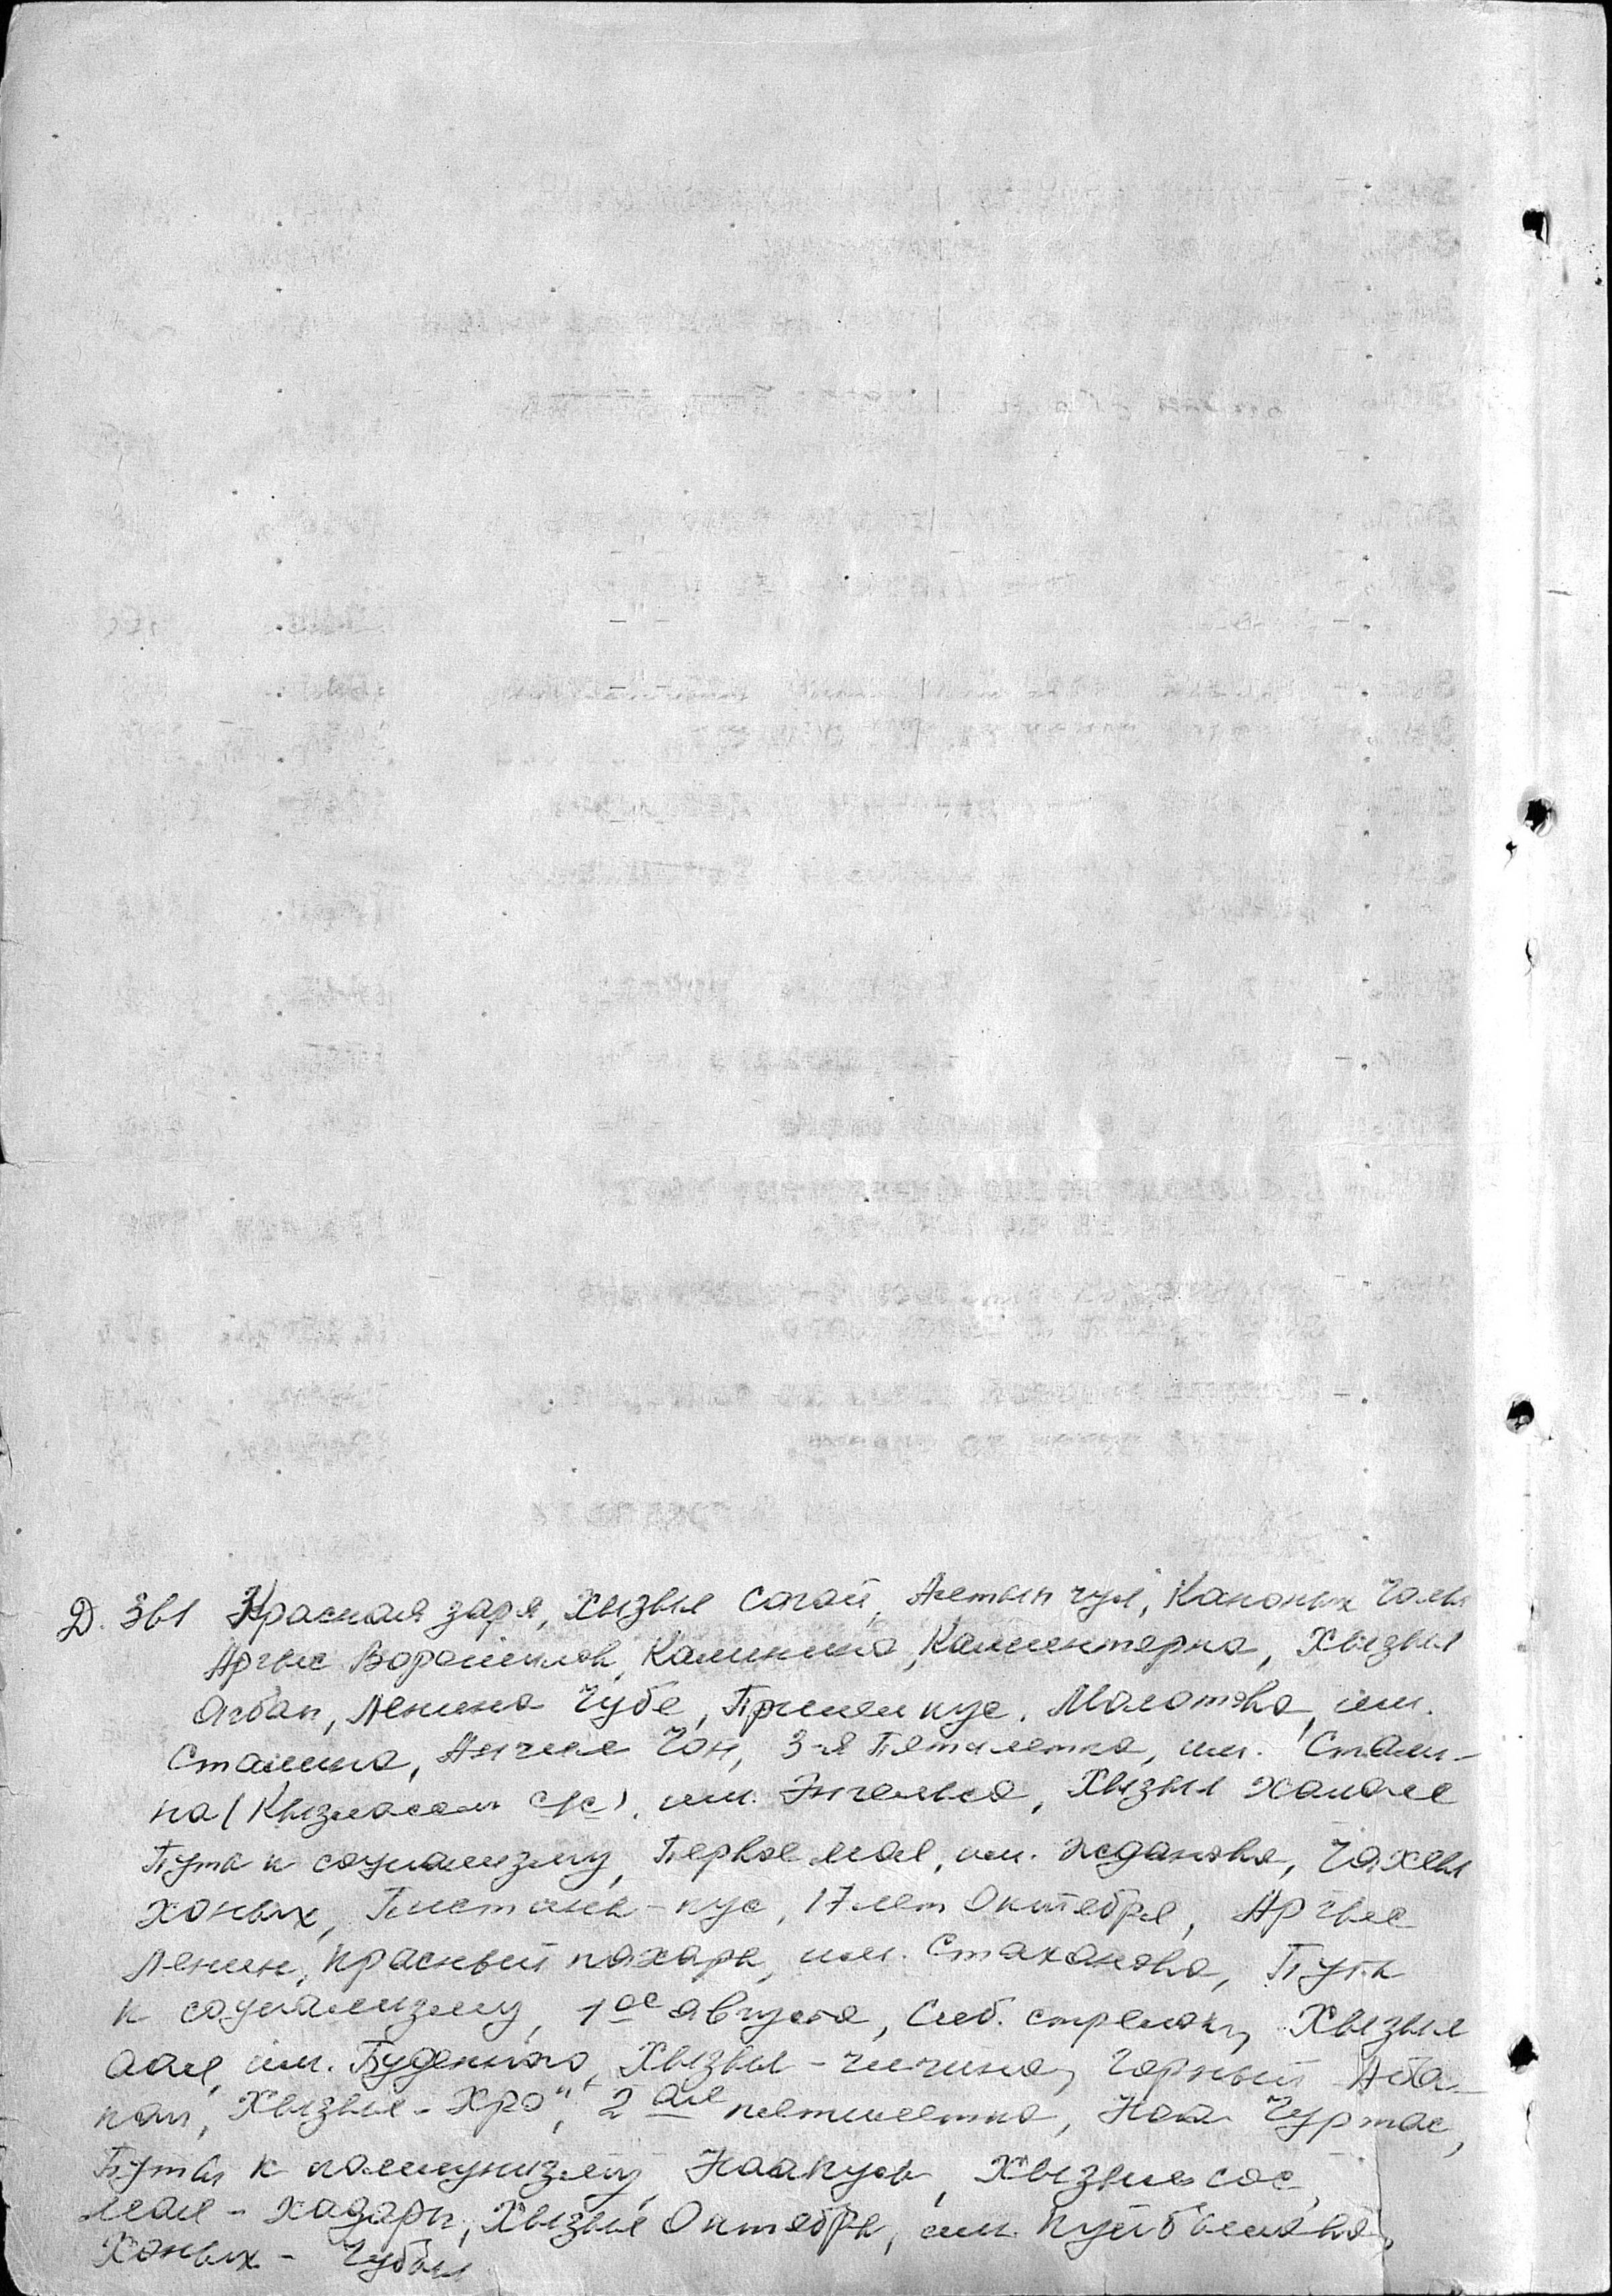 Д. 361 Красная заря, Хызыл согай, Алтын чул, Каноных Чолы
Аргыс Ворошилов, Калинина, Коминтерна, Хызыл
агбан, Ленина Чубе, Пришен кус, Молотова, им.
Сталина, Чон, 3-я Пятилетка, им. Стали-
на (Кызласов с/с), им. Энгельса, Хызыл хамале
Путь к социализму, Первое мая, им. Жданова, Чахсы
хоных, Пистинек-кус, 17 лет Октября, Аргыс
Ленин, Красный пахарь, им. Стаханова, Путь
к социализму, 1ое августа, Сиб. стрелок, Хызыл
аал, им. Буденного, Хызыл-чичина, Горный Аба-
кан, "Хызыл-Хро", 2ая пятилетка, Наа Чуртас,
Путь к коммунизму, Наакусь, Хызыл сос,
мал-хадары, Хызыл Октябрь, им. Куйбышева,
Хоных-Чубы